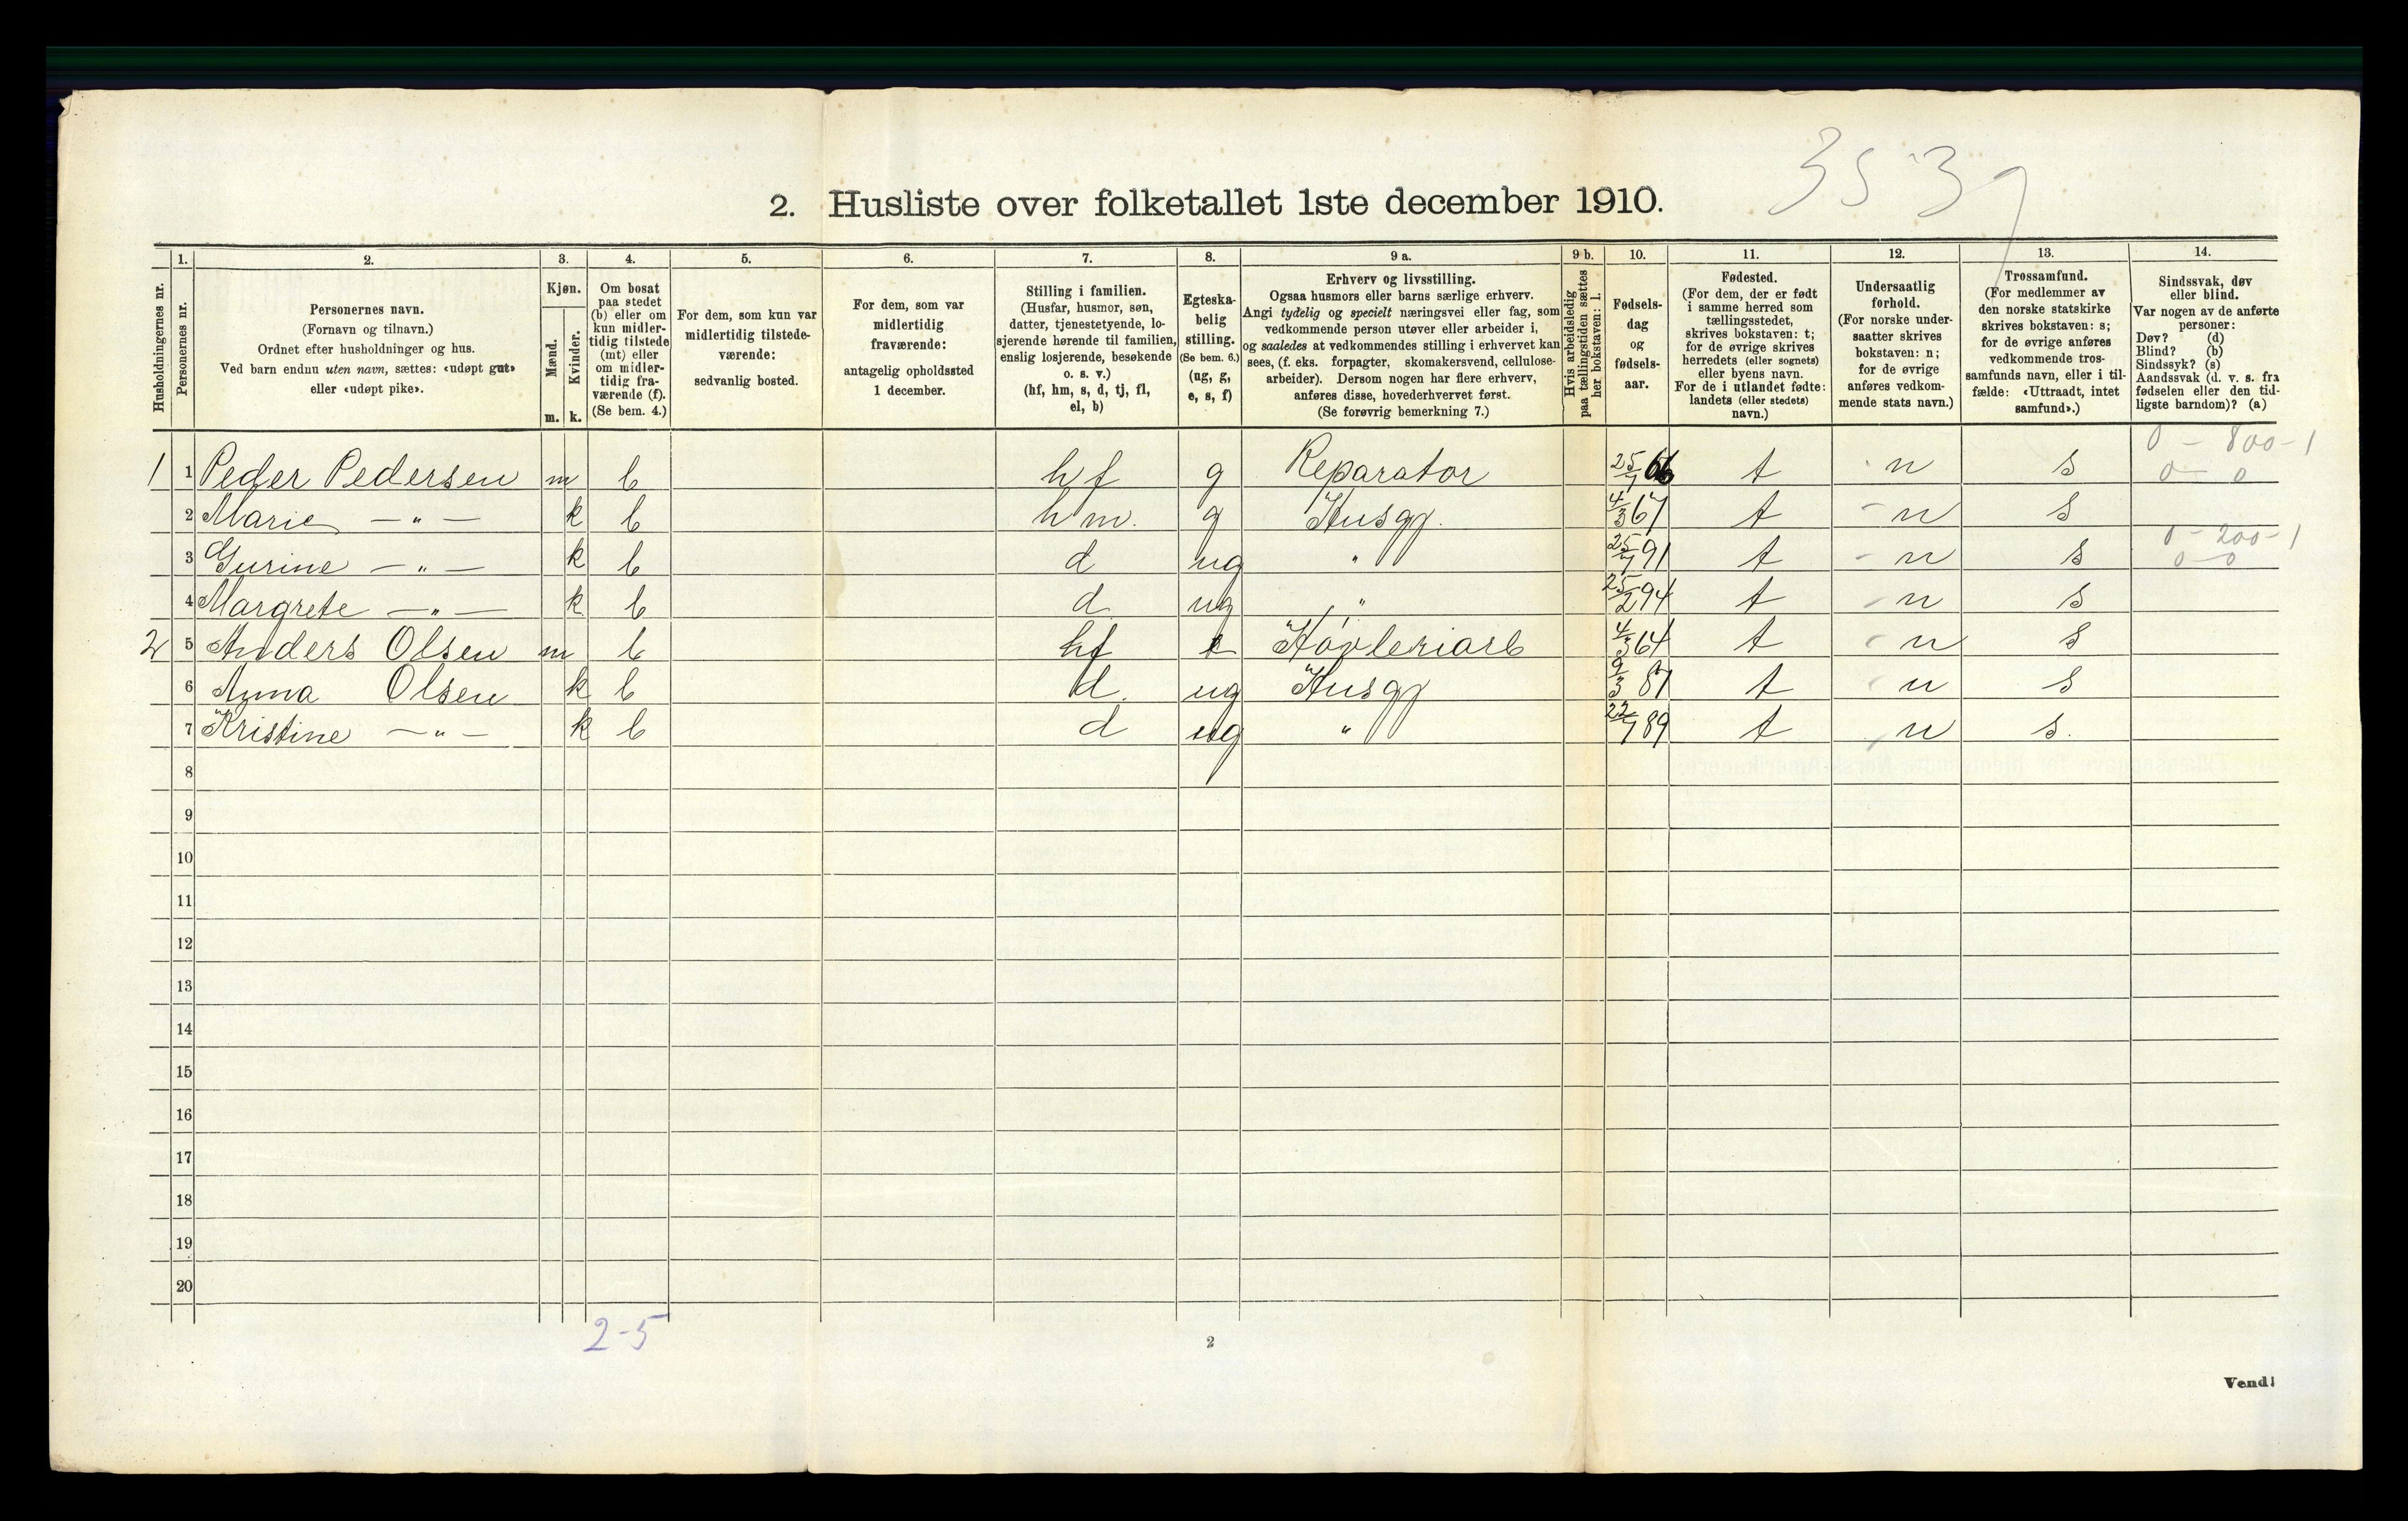 353
2. Husliste over folketallet 1ste december 1910.
Husholdningernes nr.
1. Personernes nr.
2. Personernes navn. (Fornavn og tilnavn.) Ordnet efter husholdninger og hus. Ved barn endnu uten navn, sættes: «udøpt gut» eller «udøpt pike».
3. Kjøn. Mænd. m. Kvinder. k.
4. Om bosat paa stedet (b) eller om kun midlertidig tilstede (mt) eller om midlertidig fraværende (f). (Se bem. 4.)
5. For dem, som kun var midlertidig tilstedeværende: sedvanlig bosted.
6. For dem, som var midlertidig fraværende: antagelig opholdssted 1 december.
7. Stilling i familien. (Husfar, husmor, søn, datter, tjenestetyende, losjerende hørende til familien, enslig losjerende, besøkende o. s. v.) (hf, hm, s, d, tj, fl, el, b)
8. Egteskabelig stilling. (Se bem. 6.) (ug, g, e, s, f)
9 a. Erhverv og livsstilling. Ogsaa husmors eller barns særlige erhverv. Angi tydelig og specielt næringsvei eller fag, som vedkommende person utøver eller arbeider i, og saaledes at vedkommendes stilling i erhvervet kan sees, (f. eks. forpagter, skomakersvend, cellulosearbeider). Dersom nogen har flere erhverv, anføres disse, hovederhvervet først. (Se forøvrig bemerkning 7.)
9 b. Hvis arbeidsledig paa tællingstiden sættes her bokstaven: l.
10. Fødselsdag og fødselsaar.
11. Fødested. (For dem, der er født i samme herred som tællingsstedet, skrives bokstaven: t; for de øvrige skrives herredets (eller sognets) eller byens navn. For de i utlandet fødte: landets (eller stedets) navn.)
12. Undersaatlig forhold. (For norske undersaatter skrives bokstaven: n; for de øvrige anføres vedkommende stats navn.)
13. Trossamfund. (For medlemmer av den norske statskirke skrives bokstaven: s; for de øvrige anføres vedkommende trossamfunds navn, eller i tilfælde: «Uttraadt, intet samfund».)
14. Sindssvak, døv eller blind. Var nogen av de anførte personer: Døv? (d) Blind? (b) Sindssyk? (s) Aandssvak (d. v. s. fra fødselen eller den tidligste barndom)? (a)
0 - 800 - 1
1 1 Peder Pedersen m b hf g Reparator 25/7 66 t n s 0 - 0
2 Marie — " — k b hm. g Husgj. 4/3 67 t - n s
0 - 200 - 1
3 Gurine — " — k b d ug " 25/7 91 t - n s 0 - 0
4 Margrete — " — k b d ug " 25/2 94 t n s
2 5 Anders Olsen m b hf e Høvleriarb 64 t n s
6 Anna Olsen k b d. ug Husgj 9/3 87 t n s
7 Kristine — " — k b d ug " 22/7 89 t n s.
8
9
10
11
12
13
14
15
16
17
18
19
20
2-5
2
Vend!